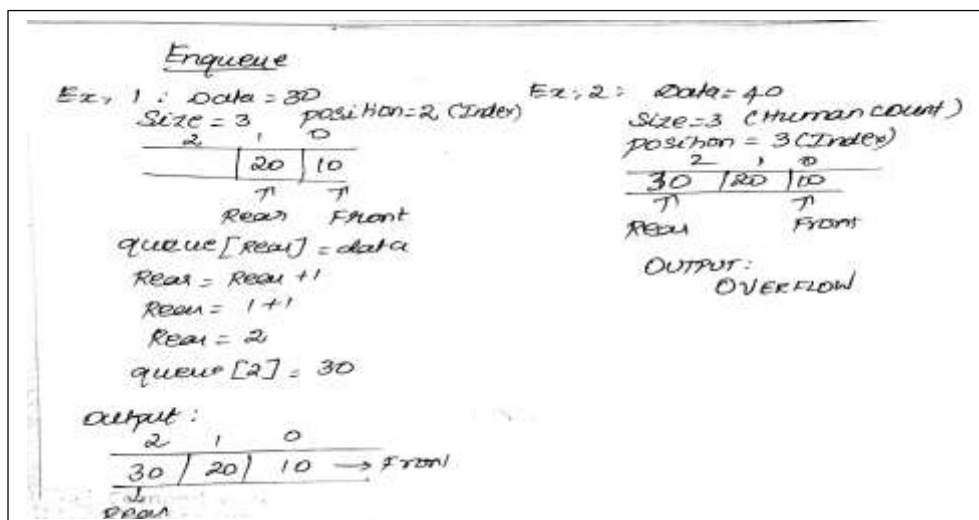 Enqueue
Ex: 1: Data = 30
Size = 3 position=2 (Index)
2 1 0
20 | 10
↑ ↑
Rear Front
queue [Rear] = data
Rear = Rear + 1
Rear = 1 + 1
Rear = 2
queue [2] = 30
Output :
2 1 0
30 | 20 | 10 → Front
↓
Rear
Ex: 2: Data = 40
Size=3 (Human count)
position = 3 (Index)
2 1 0
30 | 20 | 10
↑ ↑
Rear Front
OUTPUT:
OVERFLOW